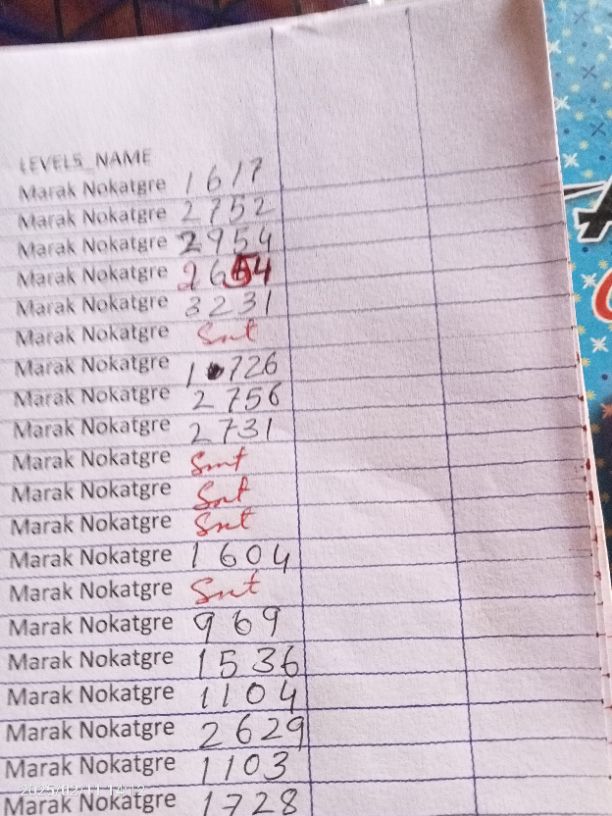 LEVEL5_NAME
Marak Nokatgre 1617
Marak Nokatgre 2752
Marak Nokatgre 2954
Marak Nokatgre 2654
Marak Nokatgre 3231
Marak Nokatgre Snt
Marak Nokatgre 1726
Marak Nokatgre 2756
Marak Nokatgre 2731
Marak Nokatgre Smt
Marak Nokatgre Snt
Marak Nokatgre Snt
Marak Nokatgre 1604
Marak Nokatgre Snt
Marak Nokatgre 969
Marak Nokatgre 1536
Marak Nokatgre 1104
Marak Nokatgre 2629
Marak Nokatgre 1103
Marak Nokatgre 1728